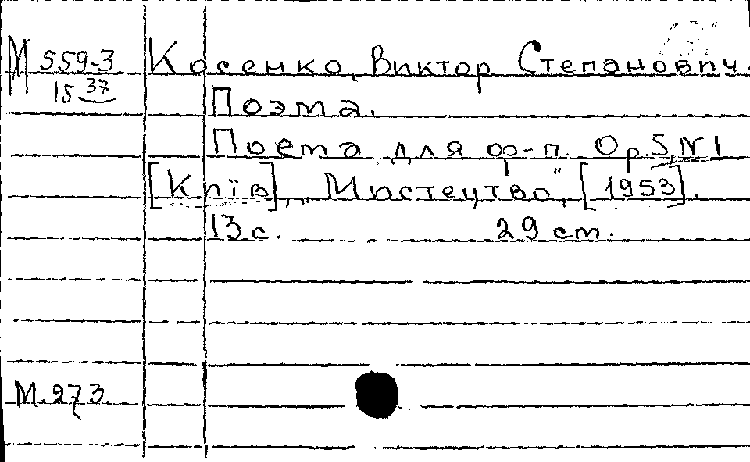 М 559-3
15 37
Косенко, Виктор Степанович.
Поэма.
Поема для ф-п. Op. 5, N 1
[Київ], „Мистецтво", [1953].
13 с. 29 см.
М. 273